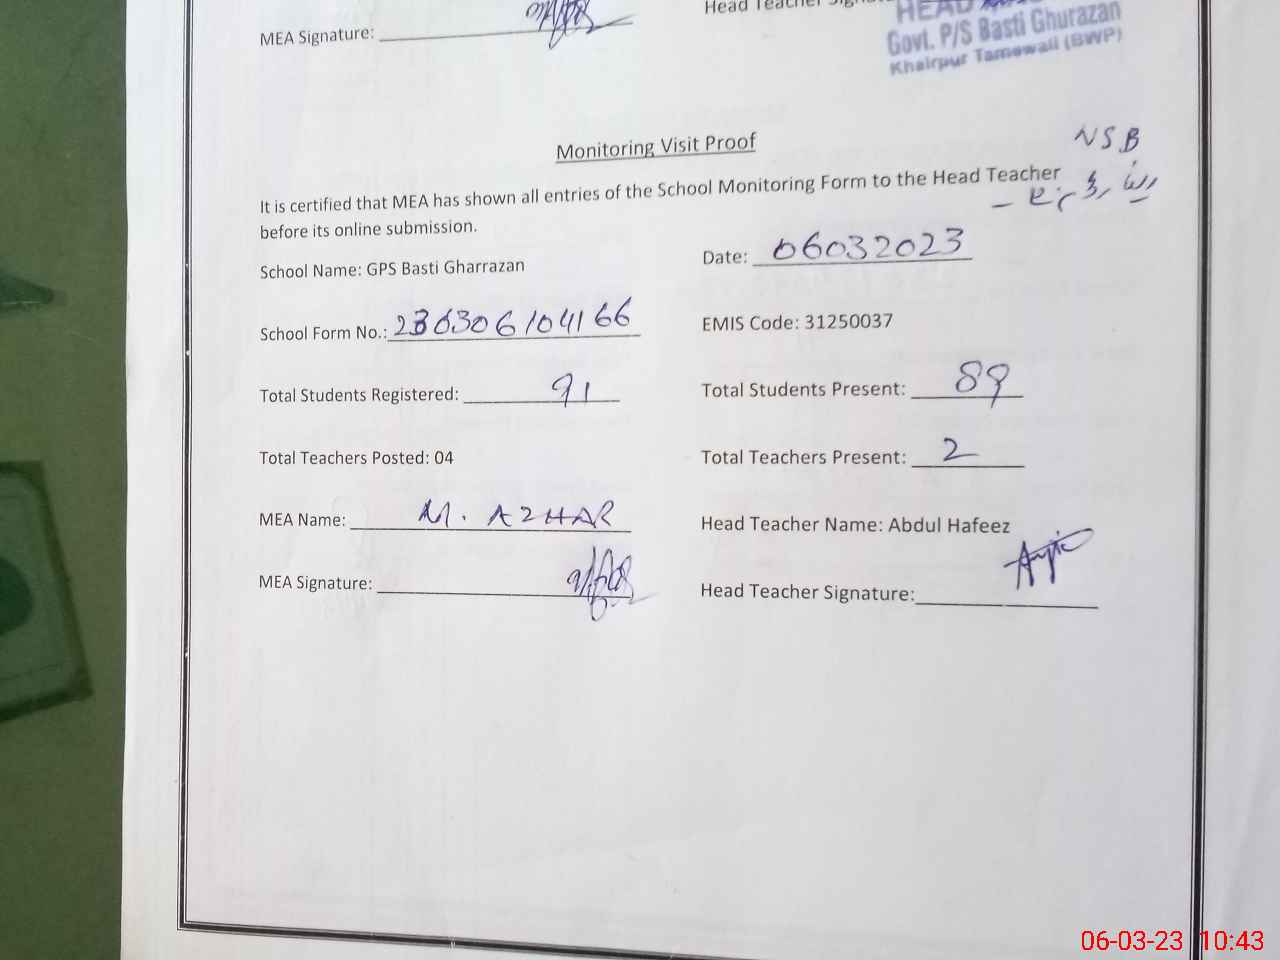 MEA Signature:
Head Teacher
HEAD
Govt. P/S Basti Ghurazan
Khairpur Tamewali (BWP)
Monitoring Visit Proof
NSB
It is certified that MEA has shown all entries of the School Monitoring Form to the Head Teacher
before its online submission.
School Name: GPS Basti Gharrazan
Date: 06032023
School Form No.: 230306104166
EMIS Code: 31250037
Total Students Registered: 91
Total Students Present: 89
Total Teachers Posted: 04
Total Teachers Present: 2
MEA Name: M. AZHAR
Head Teacher Name: Abdul Hafeez
MEA Signature:
Head Teacher Signature:
06-03-23 10:43